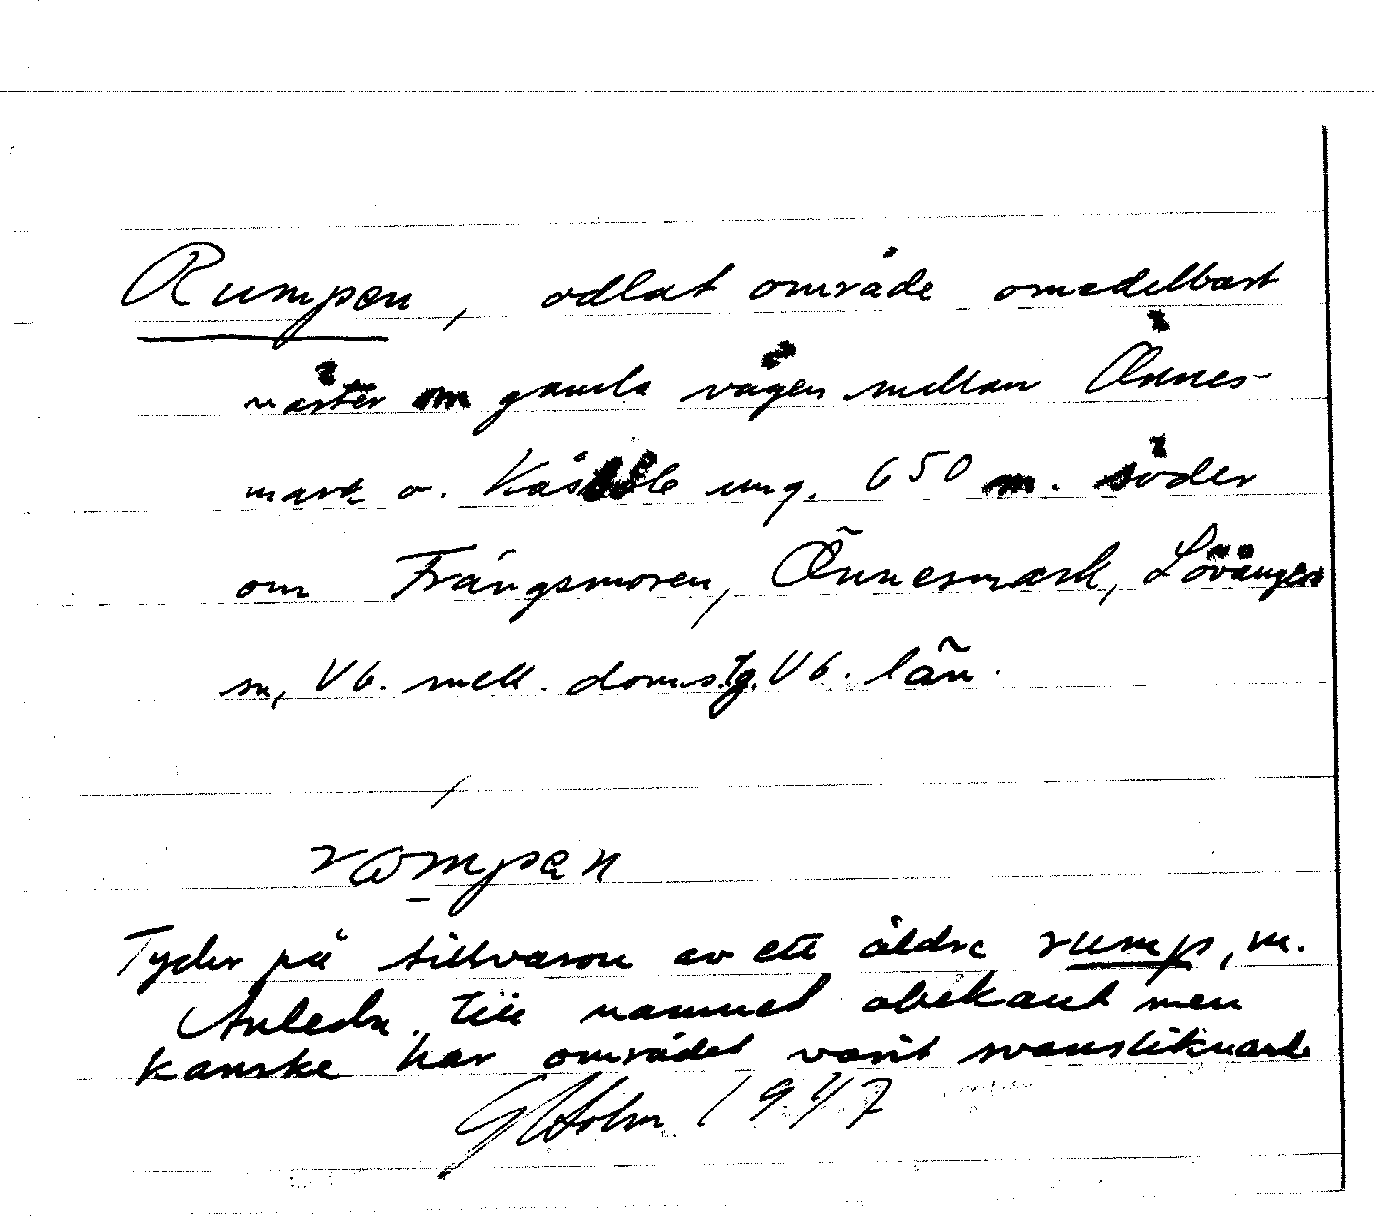 Rumpen, odlat område omedelbart
väster om gamla vägen mellan Önnes-
mark o. Kåsböle ung. 650 m. söder
om Trångsmoren, Önnesmark, Lövånger
sn, Vb. mell. doms.tg. Vb. län.
rompen
Tyder på tillvaron av ett äldre rump, m.
Anledn. till namnet obekant men
kanske har området varit svansliknande
Holm 1947